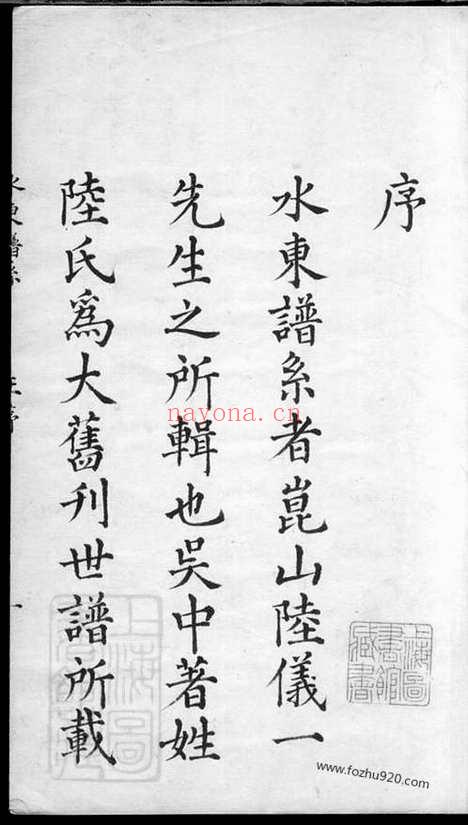 序
水東譜系者崑山陸儀一
先生之所輯也吳中著姓
陸氏爲大舊刊世譜所載
水東譜系
王序
一
上海圖書館藏書
上海圖
nayona.cn
www.fozhu920.com